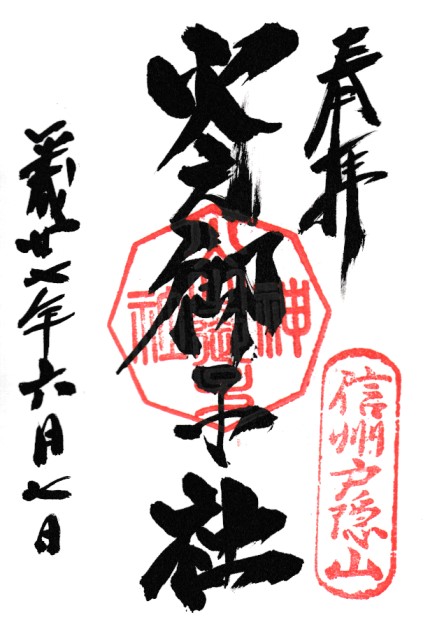 奉拝
信州戸隠山
火之御子社
平成廿七年六月七日